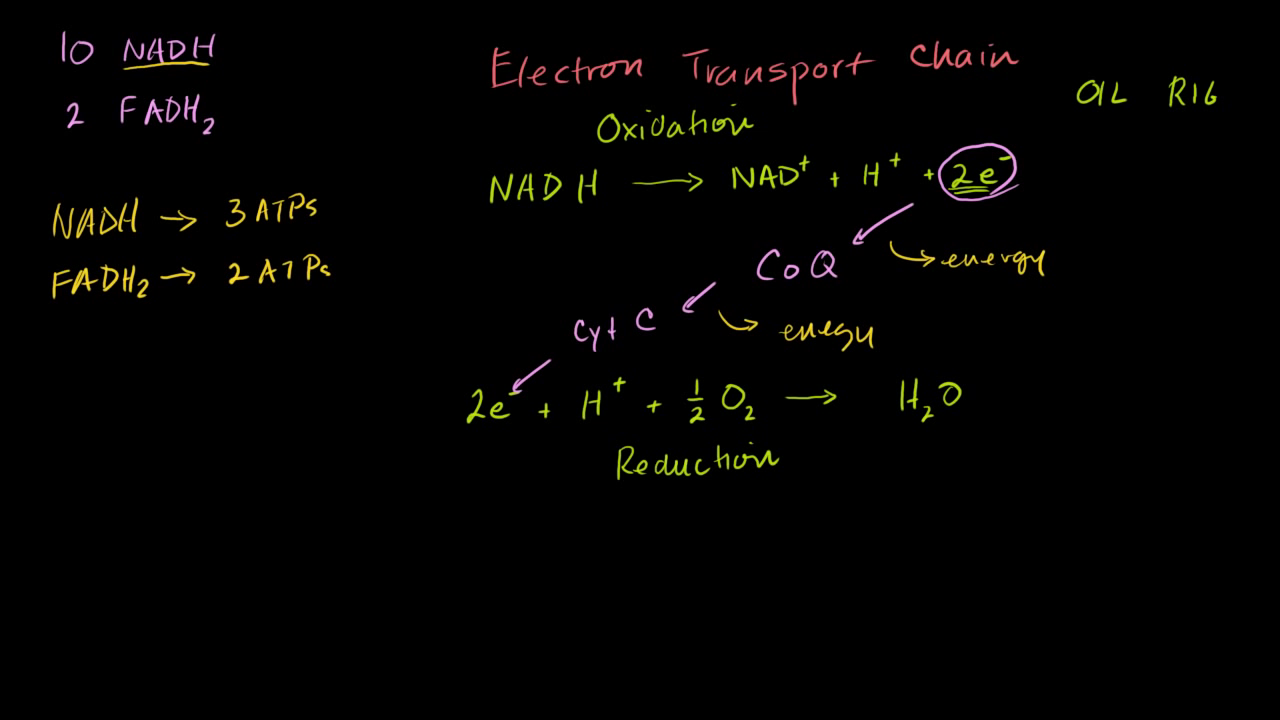 10 NADH
2 FADH₂
NADH → 3 ATPs
FADH₂ → 2 ATPs
Electron Transport Chain
OIL RIG
Oxidation
NADH → NAD⁺ + H⁺ + 2e⁻
CoQ
energy
Cyt C
energy
2e⁻ + H⁺ + ½ O₂ → H₂O
Reduction